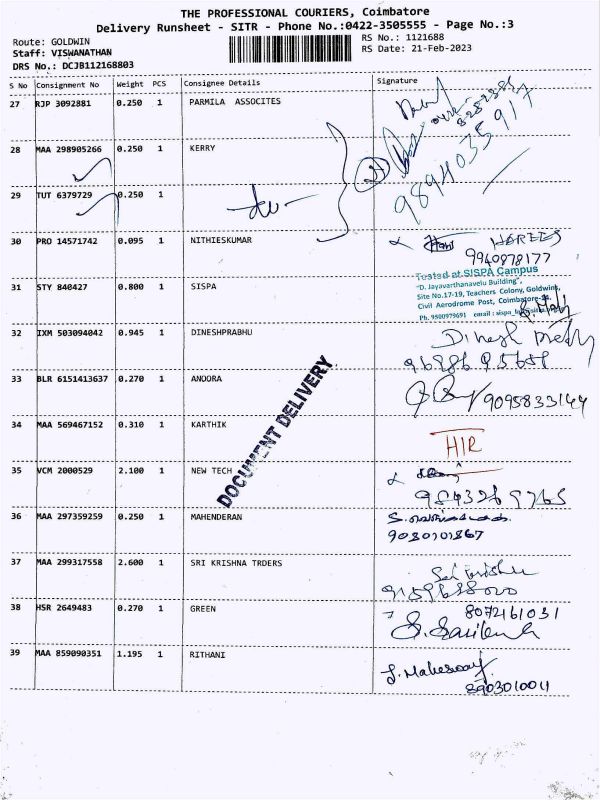 THE PROFESSIONAL COURIERS, Coimbatore
Delivery Runsheet - SITR - Phone No.:0422-3505555 - Page No.:3
Route: GOLDWIN
RS No.: 1121688
Staff: VISWANATHAN
RS Date: 21-Feb-2023
DRS No.: DCJB112168803
S No Consignment No Weight PCS Consignee Details Signature
27 RJP 3092881 0.250 1 PARMILA ASSOCITES
9894035917
28 MAA 298905266 0.250 1 KERRY
29 TUT 6379729 0.250 1
30 PRO 14571742 0.095 1 NITHIESKUMAR HAREES
9940878177
31 STY 840427 0.800 1 SISPA
Tested at SISPA Campus
"D. Jayavarthanavelu Building",
Site No.17-19, Teachers Colony, Goldwins,
Civil Aerodrome Post, Coimbatore-14.
Ph. 9500979691 email :
32 IXM 503094042 0.945 1 DINESHPRABHU Dinesh
33 BLR 6151413637 0.270 1 ANOORA 9095833144
34 MAA 569467152 0.310 1 KARTHIK HIR
35 VCM 2000529 2.100 1 NEW TECH
9843269765
DOCUMENT DELIVERY
36 MAA 297359259 0.250 1 MAHENDERAN
9030101867
37 MAA 299317558 2.600 1 SRI KRISHNA TRDERS
38 HSR 2649483 0.270 1 GREEN 8072161031
39 MAA 859090351 1.195 1 RITHANI
8903010011